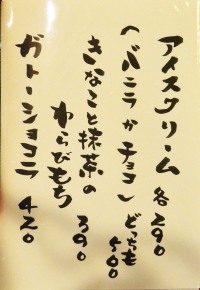 アイスクリーム 各290
(バニラかチョコ) どっちも500
きなこと抹茶の
わらびもち 390
ガトーショコラ 420